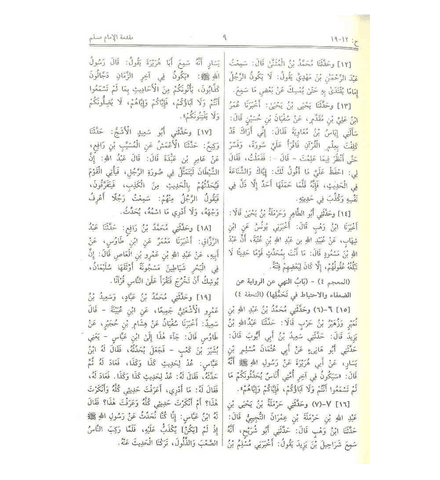 ح: ١٢-١٩
٩
مقدمة الإمام مسلم
[١٢] وَحَدَّثَنَا مُحَمَّدُ بْنُ الْمُثَنَّى قَالَ: سَمِعْتُ
عَبْدَ الرَّحْمَنِ بْنَ مَهْدِيٍّ يَقُولُ: لَا يَكُونُ الرَّجُلُ
إِمَامًا يُقْتَدَى بِهِ حَتَّى يُمْسِكَ عَنْ بَعْضِ مَا سَمِعَ.
[١٣] وَحَدَّثَنَا يَحْيَى بْنُ يَحْيَى: أَخْبَرَنَا عُمَرُ
ابْنُ عَلِيِّ بْنِ مُقَدَّمٍ، عَنْ سُفْيَانَ بْنِ حُسَيْنٍ قَالَ:
سَأَلَنِي إِيَاسُ بْنُ مُعَاوِيَةَ فَقَالَ: إِنِّي أَرَاكَ قَدْ
كَلِفْتَ بِعِلْمِ الْقُرْآنِ فَاقْرَأْ عَلَيَّ سُورَةً، وَفَسِّرْ
حَتَّى أَنْظُرَ فِيمَا عَلِمْتَ - قَالَ -: فَفَعَلْتُ، فَقَالَ
لِيَ: احْفَظْ عَلَيَّ مَا أَقُولُ لَكَ: إِيَّاكَ وَالشَّنَاعَةَ
فِي الْحَدِيثِ، فَإِنَّهُ قَلَّمَا حَمَلَهَا أَحَدٌ إِلَّا ذَلَّ فِي
نَفْسِهِ وَكُذِّبَ فِي حَدِيثِهِ.
[١٤] وَحَدَّثَنِي أَبُو الطَّاهِرِ وَحَرْمَلَةُ بْنُ يَحْيَى قَالَا:
أَخْبَرَنَا ابْنُ وَهْبٍ قَالَ: أَخْبَرَنِي يُونُسُ عَنِ ابْنِ
شِهَابٍ، عَنْ عُبَيْدِ اللهِ بْنِ عَبْدِ اللهِ بْنِ عُتْبَةَ، أَنَّ عَبْدَ
اللهِ بْنَ مَسْعُودٍ قَالَ: مَا أَنْتَ بِمُحَدِّثٍ قَوْمًا حَدِيثًا لَا
تَبْلُغُهُ عُقُولُهُمْ، إِلَّا كَانَ لِبَعْضِهِمْ فِتْنَةً.
(المعجم ٤) - (بَابُ النهي عن الرواية عن
الضعفاء والاحتياط في تَحَمُّلِهَا) (التحفة ٤)
[١٥] ٦-(٦) وَحَدَّثَنِي مُحَمَّدُ بْنُ عَبْدِ اللهِ بْنِ
نُمَيْرٍ وَزُهَيْرُ بْنُ حَرْبٍ قَالَا: حَدَّثَنَا عَبْدُ اللهِ بْنُ
يَزِيدَ قَالَ: حَدَّثَنِي سَعِيدُ بْنُ أَبِي أَيُّوبَ قَالَ:
حَدَّثَنِي أَبُو هَانِىءٍ عَنْ أَبِي عُثْمَانَ مُسْلِمِ بْنِ
يَسَارٍ، عَنْ أَبِي هُرَيْرَةَ عَنْ رَسُولِ اللهِ ﷺ أَنَّهُ
قَالَ: «سَيَكُونُ فِي آخِرِ أُمَّتِي أُنَاسٌ يُحَدِّثُونَكُمْ مَا
لَمْ تَسْمَعُوا أَنْتُمْ وَلَا آبَاؤُكُمْ، فَإِيَّاكُمْ وَإِيَّاهُمْ».
[١٦] ٧-(٧) وَحَدَّثَنِي حَرْمَلَةُ بْنُ يَحْيَى بْنِ
عَبْدِ اللهِ بْنِ حَرْمَلَةَ بْنِ عِمْرَانَ التُّجِيبِيُّ قَالَ:
حَدَّثَنَا ابْنُ وَهْبٍ قَالَ: حَدَّثَنِي أَبُو شُرَيْحٍ، أَنَّهُ
سَمِعَ شَرَاحِيلَ بْنَ يَزِيدَ يَقُولُ: أَخْبَرَنِي مُسْلِمُ بْنُ
يَسَارٍ أَنَّهُ سَمِعَ أَبَا هُرَيْرَةَ يَقُولُ: قَالَ رَسُولُ
اللهِ ﷺ: «يَكُونُ فِي آخِرِ الزَّمَانِ دَجَّالُونَ
كَذَّابُونَ، يَأْتُونَكُمْ مِنَ الْأَحَادِيثِ بِمَا لَمْ تَسْمَعُوا
أَنْتُمْ وَلَا آبَاؤُكُمْ، فَإِيَّاكُمْ وَإِيَّاهُمْ، لَا يُضِلُّونَكُمْ
وَلَا يَفْتِنُونَكُمْ».
[١٧] وَحَدَّثَنِي أَبُو سَعِيدٍ الْأَشَجُّ: حَدَّثَنَا
وَكِيعٌ: حَدَّثَنَا الْأَعْمَشُ عَنِ الْمُسَيَّبِ بْنِ رَافِعٍ،
عَنْ عَامِرِ بْنِ عَبَدَةَ قَالَ: قَالَ عَبْدُ اللهِ: إِنَّ
الشَّيْطَانَ لَيَتَمَثَّلُ فِي صُورَةِ الرَّجُلِ، فَيَأْتِي الْقَوْمَ
فَيُحَدِّثُهُمْ بِالْحَدِيثِ مِنَ الْكَذِبِ، فَيَتَفَرَّقُونَ،
فَيَقُولُ الرَّجُلُ مِنْهُمْ: سَمِعْتُ رَجُلًا أَعْرِفُ
وَجْهَهُ، وَلَا أَدْرِي مَا اسْمُهُ، يُحَدِّثُ.
[١٨] وَحَدَّثَنِي مُحَمَّدُ بْنُ رَافِعٍ: حَدَّثَنَا عَبْدُ
الرَّزَّاقِ: أَخْبَرَنَا مَعْمَرٌ عَنِ ابْنِ طَاوُسٍ، عَنْ
أَبِيهِ، عَنْ عَبْدِ اللهِ بْنِ عَمْرِو بْنِ الْعَاصِ قَالَ: إِنَّ
فِي الْبَحْرِ شَيَاطِينَ مَسْجُونَةً أَوْثَقَهَا سُلَيْمَانُ،
يُوشِكُ أَنْ تَخْرُجَ فَتَقْرَأَ عَلَى النَّاسِ قُرْآنًا.
[١٩] وَحَدَّثَنِي مُحَمَّدُ بْنُ عَبَّادٍ، وَسَعِيدُ بْنُ
عَمْرٍو الْأَشْعَثِيُّ جَمِيعًا، عَنِ ابْنِ عُيَيْنَةَ - قَالَ
سَعِيدٌ: أَخْبَرَنَا سُفْيَانُ عَنْ هِشَامِ بْنِ حُجَيْرٍ، عَنْ
طَاوُسٍ قَالَ: جَاءَ هٰذَا إِلَى ابْنِ عَبَّاسٍ - يَعْنِي
بُشَيْرَ بْنَ كَعْبٍ - فَجَعَلَ يُحَدِّثُهُ، فَقَالَ لَهُ ابْنُ
عَبَّاسٍ: عُدْ لِحَدِيثِ كَذَا وَكَذَا، فَعَادَ لَهُ، ثُمَّ
حَدَّثَهُ، فَقَالَ لَهُ: عُدْ لِحَدِيثِ كَذَا وَكَذَا، فَعَادَ لَهُ،
فَقَالَ لَهُ: مَا أَدْرِي، أَعَرَفْتَ حَدِيثِي كُلَّهُ وَأَنْكَرْتَ
هٰذَا؟ أَمْ أَنْكَرْتَ حَدِيثِي كُلَّهُ وَعَرَفْتَ هٰذَا؟ فَقَالَ
لَهُ ابْنُ عَبَّاسٍ: إِنَّا كُنَّا نُحَدِّثُ عَنْ رَسُولِ اللهِ ﷺ
إِذْ لَمْ [يَكُنْ] يُكْذَبُ عَلَيْهِ، فَلَمَّا رَكِبَ النَّاسُ
الصَّعْبَ وَالذَّلُولَ، تَرَكْنَا الْحَدِيثَ عَنْهُ.